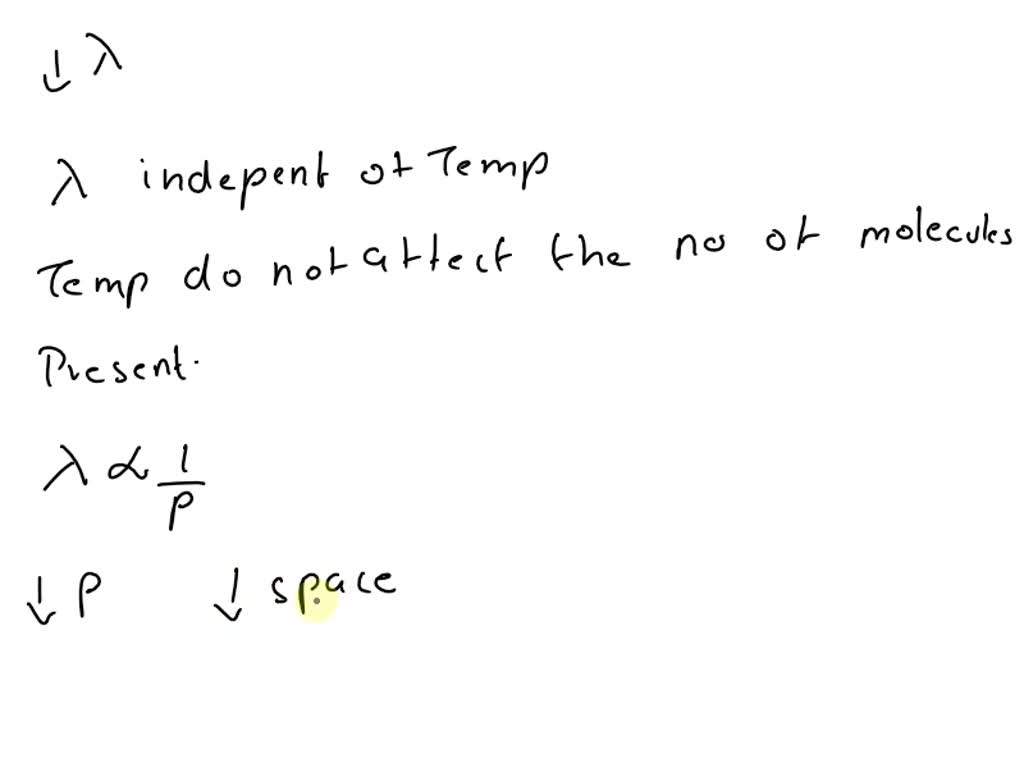 ↓ λ
λ indepent of Temp
Temp do not affect the no of molecules
Present.
λ ∝ 1/P
↓ P ↓ space